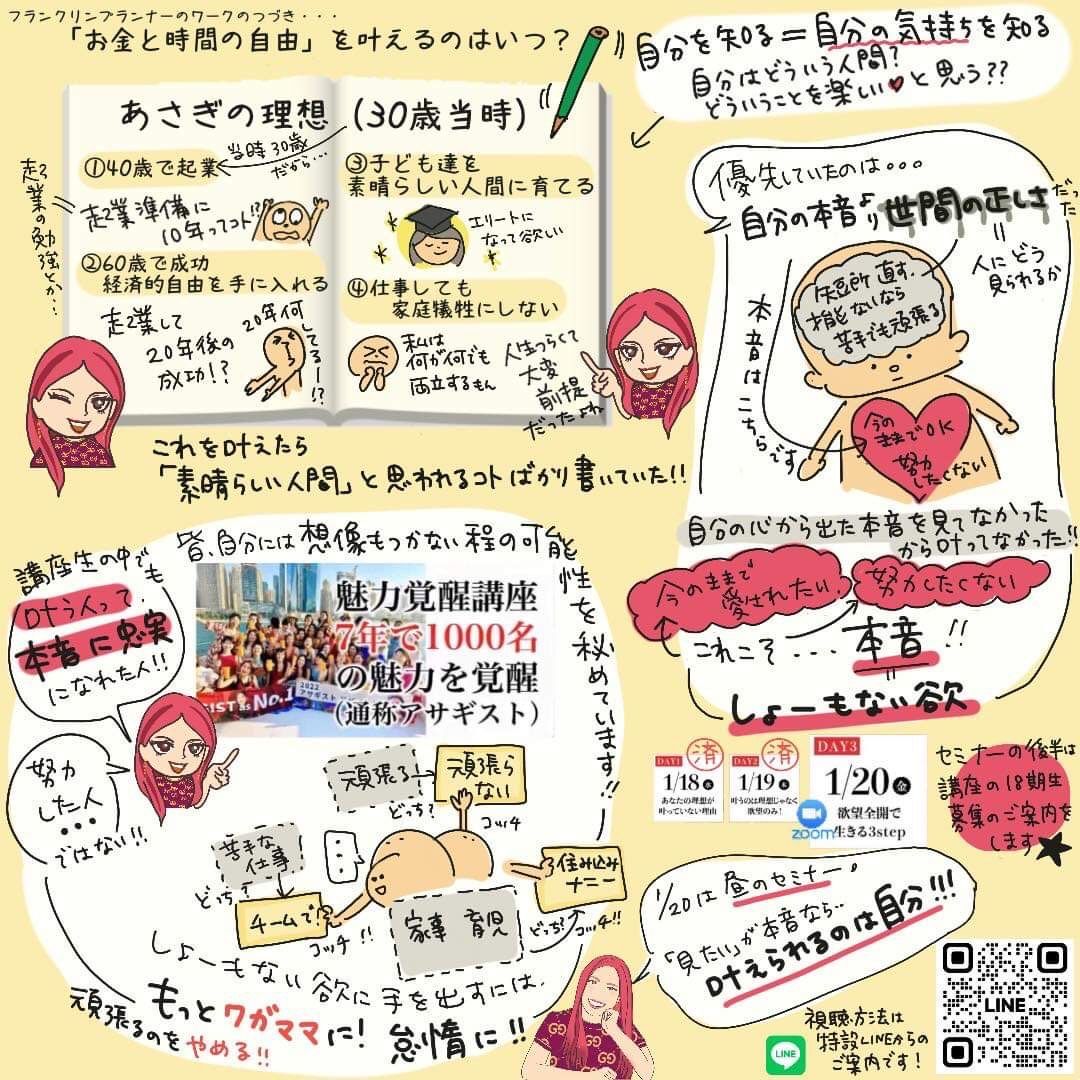 フランクリンプランナーのワークのつづき・・・
「お金と時間の自由」を叶えるのはいつ？
自分を知る＝自分の気持ちを知る
自分はどういう人間？
どういうことを楽しい♥と思う??
あさぎの理想（30歳当時）
①40歳で起業
当時30歳
だから・・・
起業の勉強とか・・・
起業準備に
10年ってコト!?
②60歳で成功
経済的自由を手に入れる
起業して
20年後の
成功!?
20年何
してるー!?
③子ども達を
素晴らしい人間に育てる
エリートに
なって欲しい
④仕事しても
家庭犠牲にしない
私は
何が何でも
両立するもん
人生つらくて
大変
前提
だったよね
これを叶えたら
「素晴らしい人間」と思われるコトばかり書いていた!!
優先していたのは。。。
自分の本音より世間の正しさだった
人にどう
見られるか
短所直す、
才能ないなら
苦手でも頑張る
本音はこちらです
今の
ままでOK
努力
したくない
自分の心から出た本音を見てなかった
から叶ってなかった!!
今のままで
愛されたい
努力したくない
これこそ・・・本音!!
しょーもない欲
皆、自分には想像もつかない程の可能性を秘めています!!
講座生の中でも
叶う人って、
本音に忠実
になれた人!!
魅力覚醒講座
7年で1000名
の魅力を覚醒
（通称アサギスト）
2022
アサギスト
GIST as No.1
努力
した人
・・・
ではない!!
頑張る
どっち？
頑張ら
ない
コッチ
苦手な
仕事
どっち？
チームで
コッチ!!
・・・
住み込み
ナニー
家事 育児
どっち？
コッチ!!
しょーもない欲に手を出すには、
もっとワガママに！怠惰に!!
頑張るのをやめる!!
DAY1
済
1/18水
あなたの理想が
叶っていない理由
DAY2
済
1/19木
叶うのは理想じゃなく
欲望のみ！
DAY3
1/20金
欲望全開で
生きる3step
zoom
セミナーの後半は
講座の18期生
募集のご案内を
します
1/20は昼のセミナー。
「見たい」が本音なら・・
叶えられるのは自分!!!
視聴方法は
特設LINEからの
ご案内です！
LINE
LINE